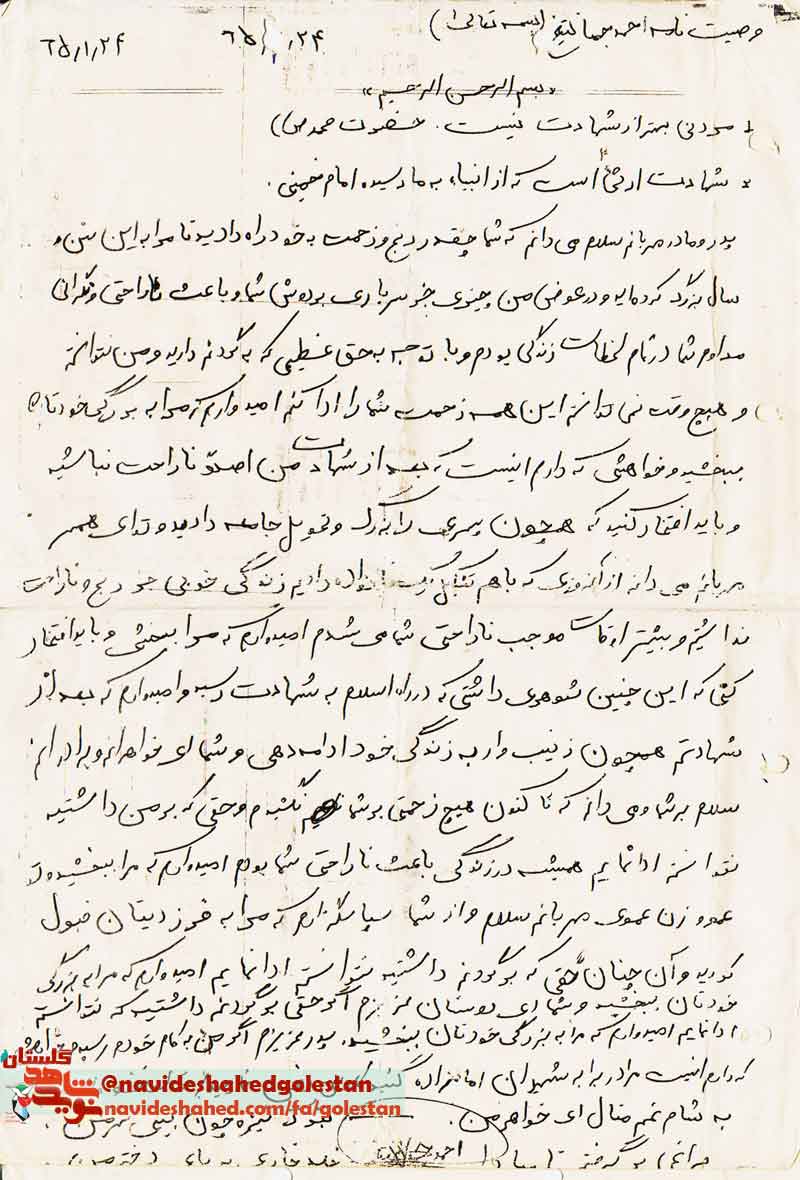 وصیت نامه احمد (بسمه تعالی)
۶۵/۱/۲۴ ۶۵/۱/۲۴
«بسم الرحمن الرحیم»
× مردنی بهتر از شهادت نیست. حضرت محمد ص))
× شهادت ارثی است که از انبیاء به ما رسیده امام خمینی.
پدر و مادر مهربانم سلام می دانم که شما چقدر رنج و زحمت به خود راه دادید تا مرا به این سن و
سال بزرگ کرده اید و در عوض من چیزی جز سرباری بر دوش شما و باعث ناراحتی و نگرانی
مداوم شما در تمام لحظات زندگی بودم و با توجه به حق عظیمی که به گردنم دارید و من نتوانسته
و هیچ وقت نمی توانم این همه زحمت شما را ادا کنم امیدوارم که مرا به بزرگی خودتان
ببخشید و خواهشی که دارم اینست که بعد از شهادت من اصلاً ناراحت نباشید
و باید افتخار کنید که همچون پسری را بزرگ و تحویل جامعه دادید و تو ای همسر
مهربانم می دانم از آنروزی که باهم تشکیل خانواده دادیم زندگی خوبی جز رنج و ناراحت
نداشتیم و بیشتر اوقات موجب ناراحتی شما می شدم امیدوارم که مرا ببخشی و باید افتخار
کنی که این چنین شوهری داشتی که در راه اسلام به شهادت رسید و امیدوارم که بعد از
شهادتم همچون زینب وار به زندگی خود ادامه دهی و شما ای خواهرانم و برادرانم
سلام بر شما و می دانم که تا کنون هیچ زحمتی بر شما نکشیدم و حقی که بر من داشتید
نتوانستم ادا نمایم همیشه در زندگی باعث ناراحتی شما بودم امیدوارم که مرا ببخشید و تو
عمو و زن عموی مهربانم سلام و از شما سپاسگزارم که مرا به فرزندیتان قبول
کردید و آن چنان حقی که بر گردنم داشتید نتوانستم ادا نمایم امیدوارم که مرا به بزرگی
خودتان ببخشید و شما ای دوستان عزیزم اگر حقی بر گردنم داشتید که نتوانستم
ادا نمایم امیدوارم که مرا به بزرگی خودتان ببخشید. پدر عزیزم اگر من به کام خودم رسیدم
که دارم اینست مرا در برابر شهیدان امامزاده
به شام غم منال ای خواهر من. چون
احمد
گلستان
نوید شاهد
@navideshahedgolestan
navideshahed.com/fa/golestan